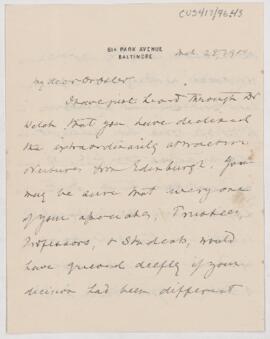 CUS417/96.43
PARK AVENUE
BALTIMORE
My dear Dr Osler
I have just heard through Dr
Welch that you have declined
the extraordinarily attractive
overtures from Edinburgh. You
may be sure that every one
of your associates, Trustees,
Professors, & Students, would
have grieved deeply if your
decision had been different